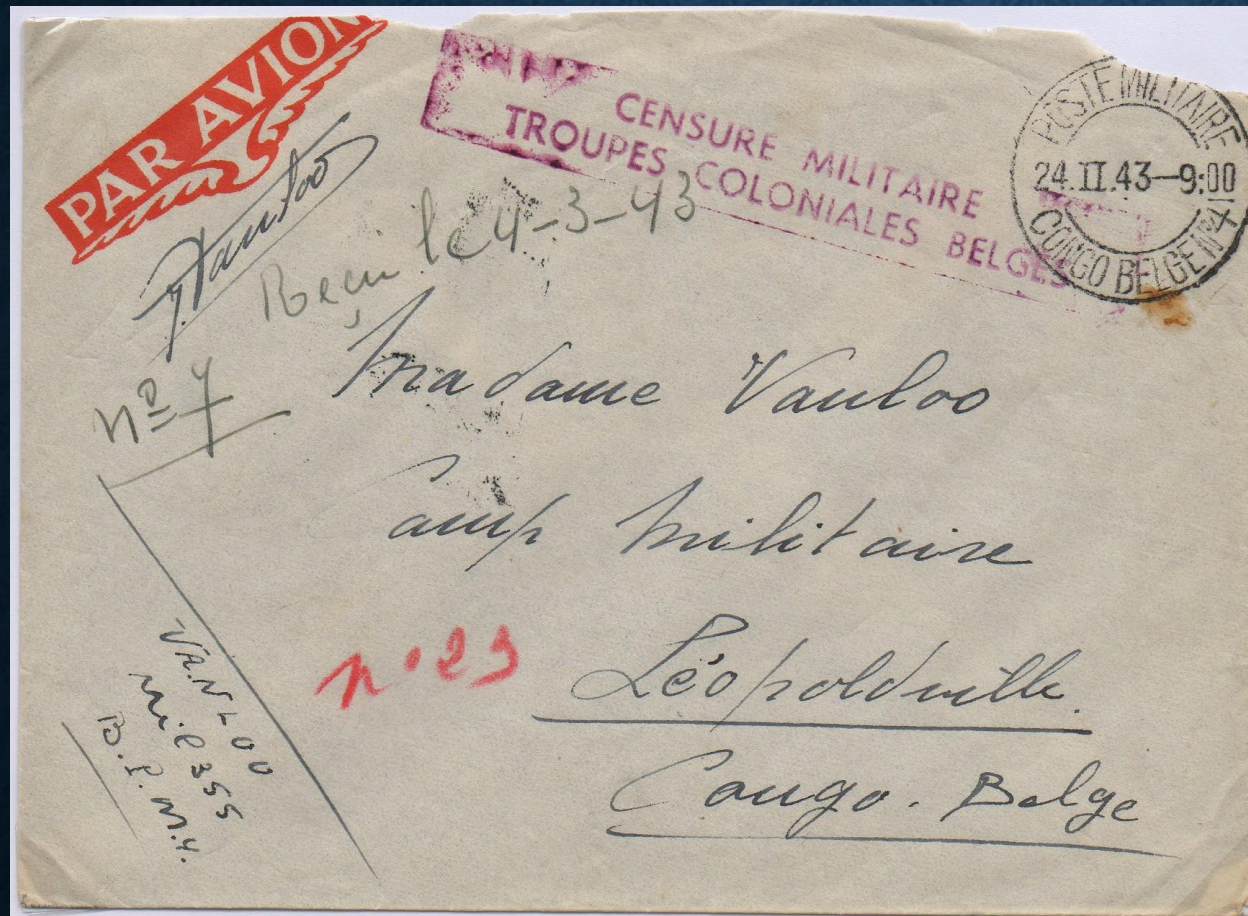 PAR AVION
CENSURE MILITAIRE
TROUPES COLONIALES BELGES
POSTE MILITAIRE
24.II.43—9:00
CONGO BELGE Nº4
J. Vanloo
Reçu le 4-3-43
nº 7
Madame Vanloo
Camp Militaire
Léopoldville.
Congo. Belge
nº 29
VANLOO
mil 355
B.P.M.4.